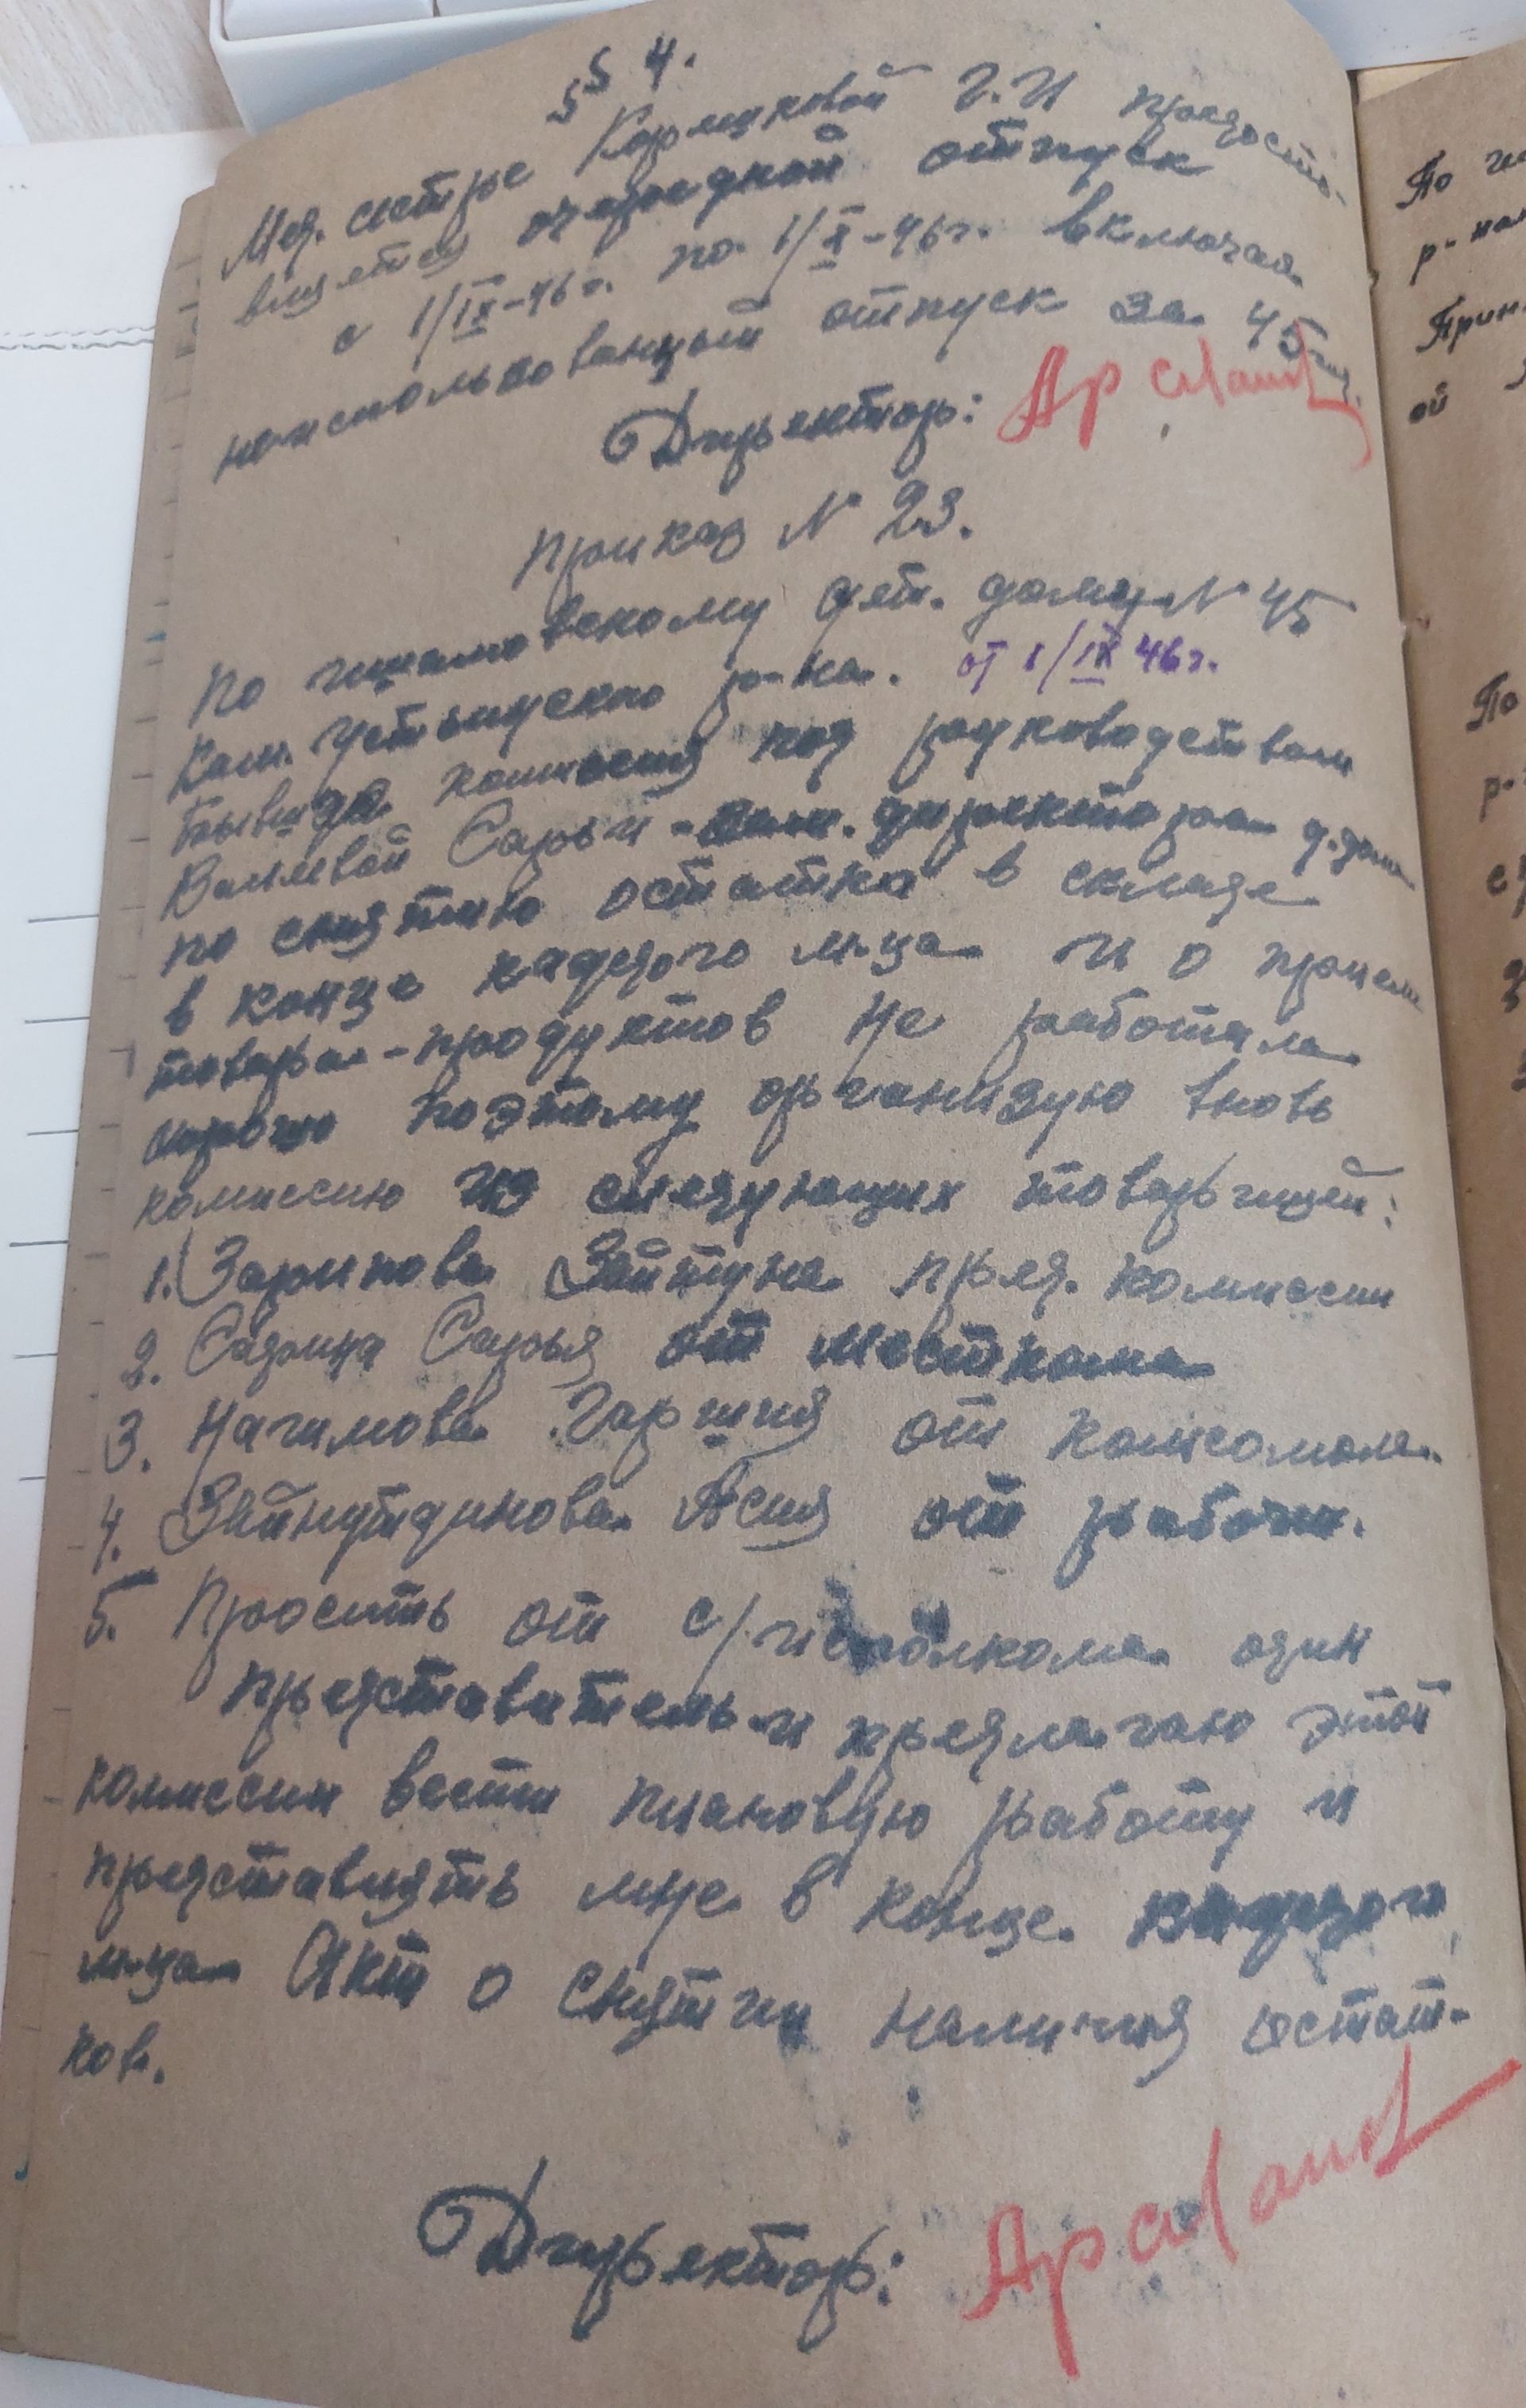 §§ 4.
Мед. сестре Кормиковой Г. И предоста-
вляется очередной отпуск
с 1/IX-46 г. по 1/X-46 г. включая
неиспользованный отпуск за 45 год.
Директор:
Приказ № 23.
По дет. дому № 45
Кам. Устьинского р-на. от 1/IX 46 г.
Бывшая комиссия под руководством
Валиевой Сарьи - зам. директора д.дома
по снятию остатка в складе
в конце каждого м-ца и о приеме
товара-продуктов не работала
хорошо поэтому организую вновь
комиссию из следующих товарищей:
1. Зарипова Зайтуна пред. комиссии
2. Садрина Сарья от месткома
3. Нагимова от комсомола.
4. Зайнутдинова Асия от рабочи.
5. Просить от с/исполкома один
представитель и предлагаю этой
комиссии вести плановую работу и
представлять мне в конце каждого
м-ца Акт о снятии наличия остат-
ков.
Директор:
По
р-на
Прин
ой
По
р-